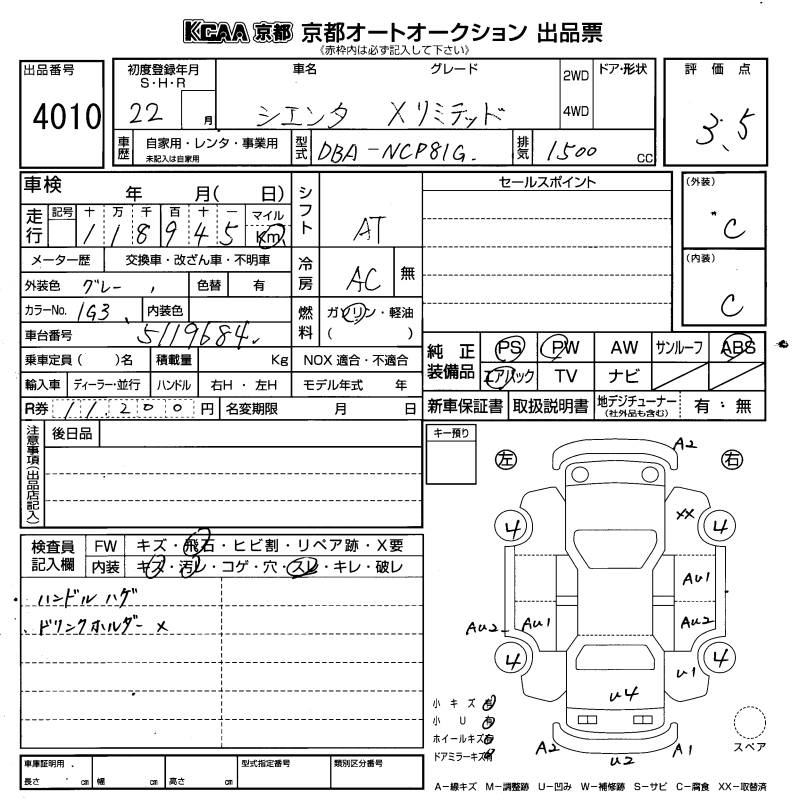 KCAA 京都 京都オートオークション 出品票
《赤枠内は必ず記入して下さい》
出品番号
4010
初度登録年月
S・H・R
22 月
車名 グレード
シエンタ Xリミテッド
2WD
4WD
ドア・形状
評価点
3.5
車歴
自家用・レンタ・事業用
未記入は自家用
型式
DBA-NCP81G.
排気
1500 CC
車検 年 月( 日)
走行
記号 十 万 千 百 十 一 マイル
118945 Km
メーター歴 交換車・改ざん車・不明車
外装色 グレー 色替 有
カラーNo. 1G3 内装色
車台番号 5119684
乗車定員( )名 積載量 Kg NOX 適合・不適合
輸入車 ディーラー・並行 ハンドル 右H・左H モデル年式 年
R券 11,200 円 名変期限 月 日
シフト
AT
冷房
AC 無
燃料
ガソリン・軽油
( )
セールスポイント
(外装)
C
(内装)
C
純正装備品
PS PW AW サンルーフ ABS
エアバック TV ナビ
新車保証書 取扱説明書 地デジチューナー 有:無
(社外品も含む)
注意事項(出品店記入)
後日品
キー預り
左 右
検査員記入欄
FW キズ・飛石・ヒビ割・リペア跡・X要
内装 キズ・汚レ・コゲ・穴・スレ・キレ・破レ
ハンドル ハゲ
ドリンクホルダー ×
A2
4 XX 4
AU1
AU2 AU1 AU2
4 U1 4
U4
A2 U2 A1
小キズ 有
小U 有
ホイールキズ 有
ドアミラーキズ 有
スペア
車庫証明用
長さ cm 幅 cm 高さ cm
型式指定番号
類別区分番号
A-線キズ M-調整跡 U-凹み W-補修跡 S-サビ C-腐食 XX-取替済